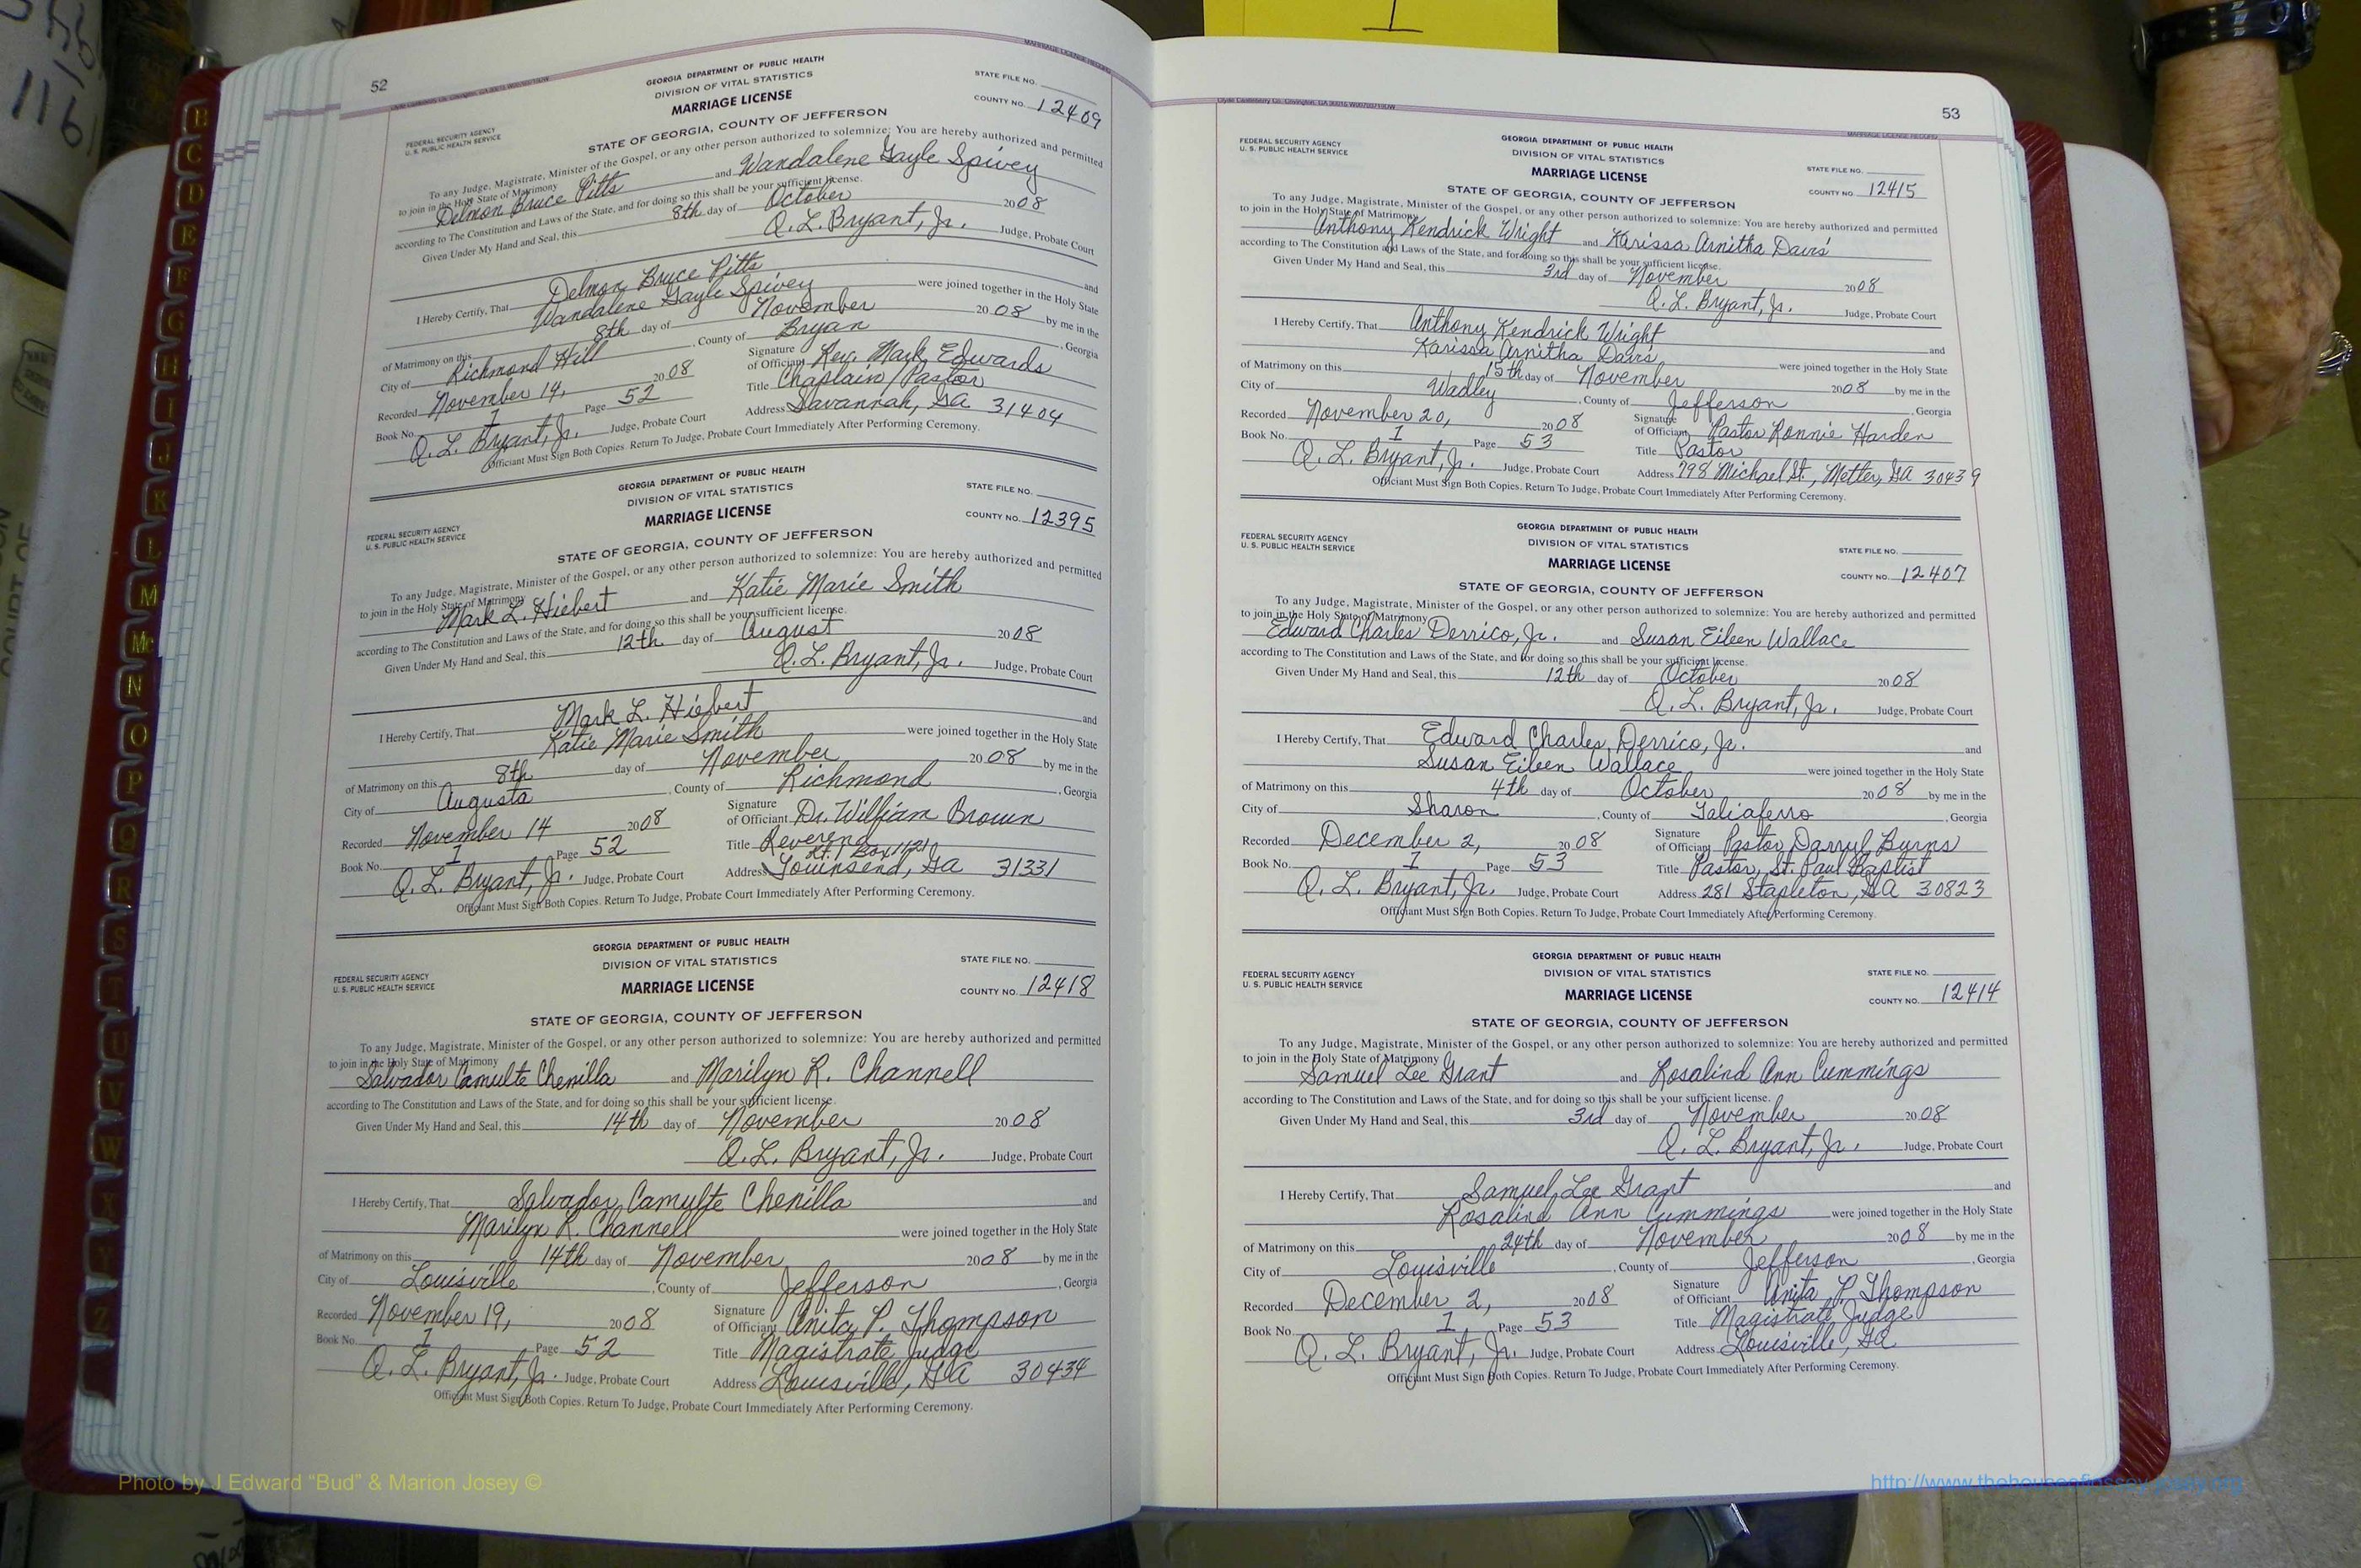 1
52
MARRIAGE LICENSE RECORD
GEORGIA DEPARTMENT OF PUBLIC HEALTH
DIVISION OF VITAL STATISTICS
MARRIAGE LICENSE
STATE FILE NO.
COUNTY NO. 12409
FEDERAL SECURITY AGENCY
U. S. PUBLIC HEALTH SERVICE
STATE OF GEORGIA, COUNTY OF JEFFERSON
To any Judge, Magistrate, Minister of the Gospel, or any other person authorized to solemnize: You are hereby authorized and permitted
to join in the Holy State of Matrimony
Delmon Bruce Pitts and Wandalene Gayle Spivey
according to The Constitution and Laws of the State, and for doing so this shall be your sufficient license.
Given Under My Hand and Seal, this 8th day of October 2008
Q. L. Bryant, Jr. Judge, Probate Court
I Hereby Certify, That Delmon Bruce Pitts and
Wandalene Gayle Spivey were joined together in the Holy State
of Matrimony on this 8th day of November 2008 by me in the
City of Richmond Hill, County of Bryan, Georgia
Recorded November 14, 2008 Signature of Officiant Rev. Mark Edwards
Book No. 1 Page 52 Title Chaplain/Pastor
Q. L. Bryant, Jr. Judge, Probate Court Address Savannah, GA 31404
Officiant Must Sign Both Copies. Return To Judge, Probate Court Immediately After Performing Ceremony.
GEORGIA DEPARTMENT OF PUBLIC HEALTH
DIVISION OF VITAL STATISTICS
MARRIAGE LICENSE
STATE FILE NO.
COUNTY NO. 12395
FEDERAL SECURITY AGENCY
U. S. PUBLIC HEALTH SERVICE
STATE OF GEORGIA, COUNTY OF JEFFERSON
To any Judge, Magistrate, Minister of the Gospel, or any other person authorized to solemnize: You are hereby authorized and permitted
to join in the Holy State of Matrimony
Mark L. Hiebert and Katie Marie Smith
according to The Constitution and Laws of the State, and for doing so this shall be your sufficient license.
Given Under My Hand and Seal, this 12th day of August 2008
Q. L. Bryant, Jr. Judge, Probate Court
I Hereby Certify, That Mark L. Hiebert and
Katie Marie Smith were joined together in the Holy State
of Matrimony on this 8th day of November 2008 by me in the
City of Augusta, County of Richmond, Georgia
Recorded November 14 2008 Signature of Officiant Dr. William Brown
Book No. 1 Page 52 Title Reverend
Rt. 1 Box 1421
Q. L. Bryant, Jr. Judge, Probate Court Address Townsend, GA 31331
Officiant Must Sign Both Copies. Return To Judge, Probate Court Immediately After Performing Ceremony.
GEORGIA DEPARTMENT OF PUBLIC HEALTH
DIVISION OF VITAL STATISTICS
MARRIAGE LICENSE
STATE FILE NO.
COUNTY NO. 12418
FEDERAL SECURITY AGENCY
U. S. PUBLIC HEALTH SERVICE
STATE OF GEORGIA, COUNTY OF JEFFERSON
To any Judge, Magistrate, Minister of the Gospel, or any other person authorized to solemnize: You are hereby authorized and permitted
to join in the Holy State of Matrimony
Salvador Camulte Chenilla and Marilyn R. Channell
according to The Constitution and Laws of the State, and for doing so this shall be your sufficient license.
Given Under My Hand and Seal, this 14th day of November 2008
Q. L. Bryant, Jr. Judge, Probate Court
I Hereby Certify, That Salvador Camulte Chenilla and
Marilyn R. Channell were joined together in the Holy State
of Matrimony on this 14th day of November 2008 by me in the
City of Louisville, County of Jefferson, Georgia
Recorded November 19, 2008 Signature of Officiant Anita P. Thompson
Book No. 1 Page 52 Title Magistrate Judge
Q. L. Bryant, Jr. Judge, Probate Court Address Louisville, GA 30434
Officiant Must Sign Both Copies. Return To Judge, Probate Court Immediately After Performing Ceremony.
53
MARRIAGE LICENSE RECORD
GEORGIA DEPARTMENT OF PUBLIC HEALTH
DIVISION OF VITAL STATISTICS
MARRIAGE LICENSE
STATE FILE NO.
COUNTY NO. 12415
FEDERAL SECURITY AGENCY
U. S. PUBLIC HEALTH SERVICE
STATE OF GEORGIA, COUNTY OF JEFFERSON
To any Judge, Magistrate, Minister of the Gospel, or any other person authorized to solemnize: You are hereby authorized and permitted
to join in the Holy State of Matrimony
Anthony Kendrick Wright and Karissa Arnitha Davis
according to The Constitution and Laws of the State, and for doing so this shall be your sufficient license.
Given Under My Hand and Seal, this 3rd day of November 2008
Q. L. Bryant, Jr. Judge, Probate Court
I Hereby Certify, That Anthony Kendrick Wright and
Karissa Arnitha Davis were joined together in the Holy State
of Matrimony on this 15th day of November 2008 by me in the
City of Wadley, County of Jefferson, Georgia
Recorded November 20, 2008 Signature of Officiant Pastor Ronnie Harden
Book No. 1 Page 53 Title Pastor
Q. L. Bryant, Jr. Judge, Probate Court Address 798 Michael St., Metter, GA 30439
Officiant Must Sign Both Copies. Return To Judge, Probate Court Immediately After Performing Ceremony.
GEORGIA DEPARTMENT OF PUBLIC HEALTH
DIVISION OF VITAL STATISTICS
MARRIAGE LICENSE
STATE FILE NO.
COUNTY NO. 12407
FEDERAL SECURITY AGENCY
U. S. PUBLIC HEALTH SERVICE
STATE OF GEORGIA, COUNTY OF JEFFERSON
To any Judge, Magistrate, Minister of the Gospel, or any other person authorized to solemnize: You are hereby authorized and permitted
to join in the Holy State of Matrimony
Edward Charles Derrico, Jr. and Susan Eileen Wallace
according to The Constitution and Laws of the State, and for doing so this shall be your sufficient license.
Given Under My Hand and Seal, this 12th day of October 2008
Q. L. Bryant, Jr. Judge, Probate Court
I Hereby Certify, That Edward Charles Derrico, Jr. and
Susan Eileen Wallace were joined together in the Holy State
of Matrimony on this 4th day of October 2008 by me in the
City of Sharon, County of Taliaferro, Georgia
Recorded December 2, 2008 Signature of Officiant Pastor Darryl Byrns
Book No. 1 Page 53 Title Pastor, St. Paul Baptist
Q. L. Bryant, Jr. Judge, Probate Court Address 281 Stapleton, GA 30823
Officiant Must Sign Both Copies. Return To Judge, Probate Court Immediately After Performing Ceremony.
GEORGIA DEPARTMENT OF PUBLIC HEALTH
DIVISION OF VITAL STATISTICS
MARRIAGE LICENSE
STATE FILE NO.
COUNTY NO. 12414
FEDERAL SECURITY AGENCY
U. S. PUBLIC HEALTH SERVICE
STATE OF GEORGIA, COUNTY OF JEFFERSON
To any Judge, Magistrate, Minister of the Gospel, or any other person authorized to solemnize: You are hereby authorized and permitted
to join in the Holy State of Matrimony
Samuel Lee Grant and Rosalind Ann Cummings
according to The Constitution and Laws of the State, and for doing so this shall be your sufficient license.
Given Under My Hand and Seal, this 3rd day of November 2008
Q. L. Bryant, Jr. Judge, Probate Court
I Hereby Certify, That Samuel Lee Grant and
Rosalind Ann Cummings were joined together in the Holy State
of Matrimony on this 24th day of November 2008 by me in the
City of Louisville, County of Jefferson, Georgia
Recorded December 2, 2008 Signature of Officiant Anita P Thompson
Book No. 1 Page 53 Title Magistrate Judge
Q. L. Bryant, Jr. Judge, Probate Court Address Louisville, GA
Officiant Must Sign Both Copies. Return To Judge, Probate Court Immediately After Performing Ceremony.
B
C
D
E
F
G
H
I
J
K
L
M
Mc
N
O
P
Q
R
S
T
U
V
W
X
Y
Z
Photo by J Edward "Bud" & Marion Josey ©